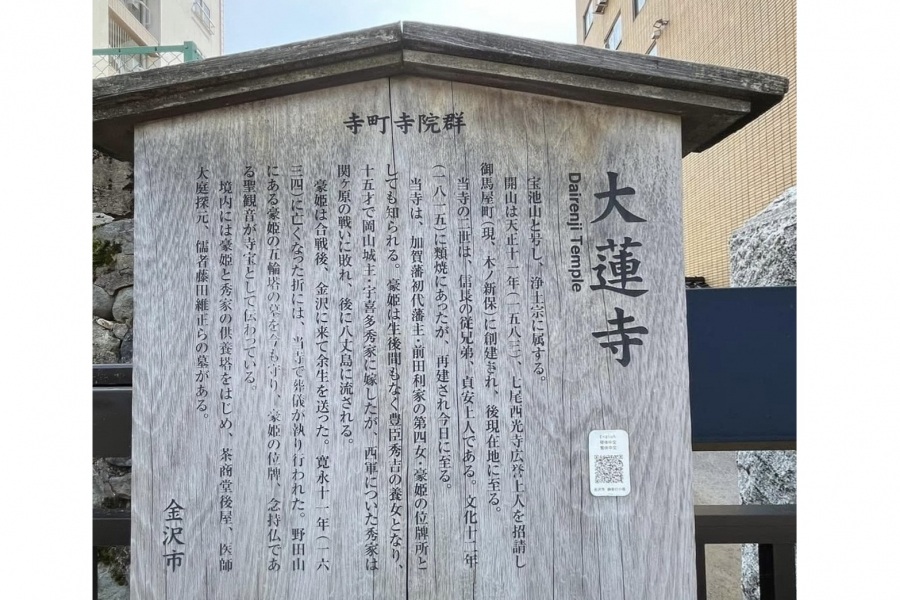 寺町寺院群
大蓮寺
Dairenji Temple
宝池山と号し、浄土宗に属する。
開山は天正十一年(一五八三)、七尾西光寺広誉上人を招請し
御馬屋町(現、木ノ新保)に創建され、後現在地に至る。
当寺の二世は、信長の従兄弟、貞安上人である。文化十二年
(一八一五)に類焼にあったが、再建され今日に至る。
当寺は、加賀藩初代藩主・前田利家の第四女・豪姫の位牌所と
しても知られる。豪姫は生後間もなく豊臣秀吉の養女となり、
十五才で岡山城主・宇喜多秀家に嫁したが、西軍についた秀家は
関ヶ原の戦いに敗れ、後に八丈島に流される。
豪姫は合戦後、金沢に来て余生を送った。寛永十一年(一六
三四)に亡くなった折には、当寺で葬儀が執り行われた。野田山
にある豪姫の五輪塔の墓を今も守り、豪姫の位牌、念持仏であ
る聖観音が寺宝として伝わっている。
境内には豪姫と秀家の供養塔をはじめ、茶商堂後屋、医師
太庭探元、儒者藤田維正らの墓がある。
金沢市
English